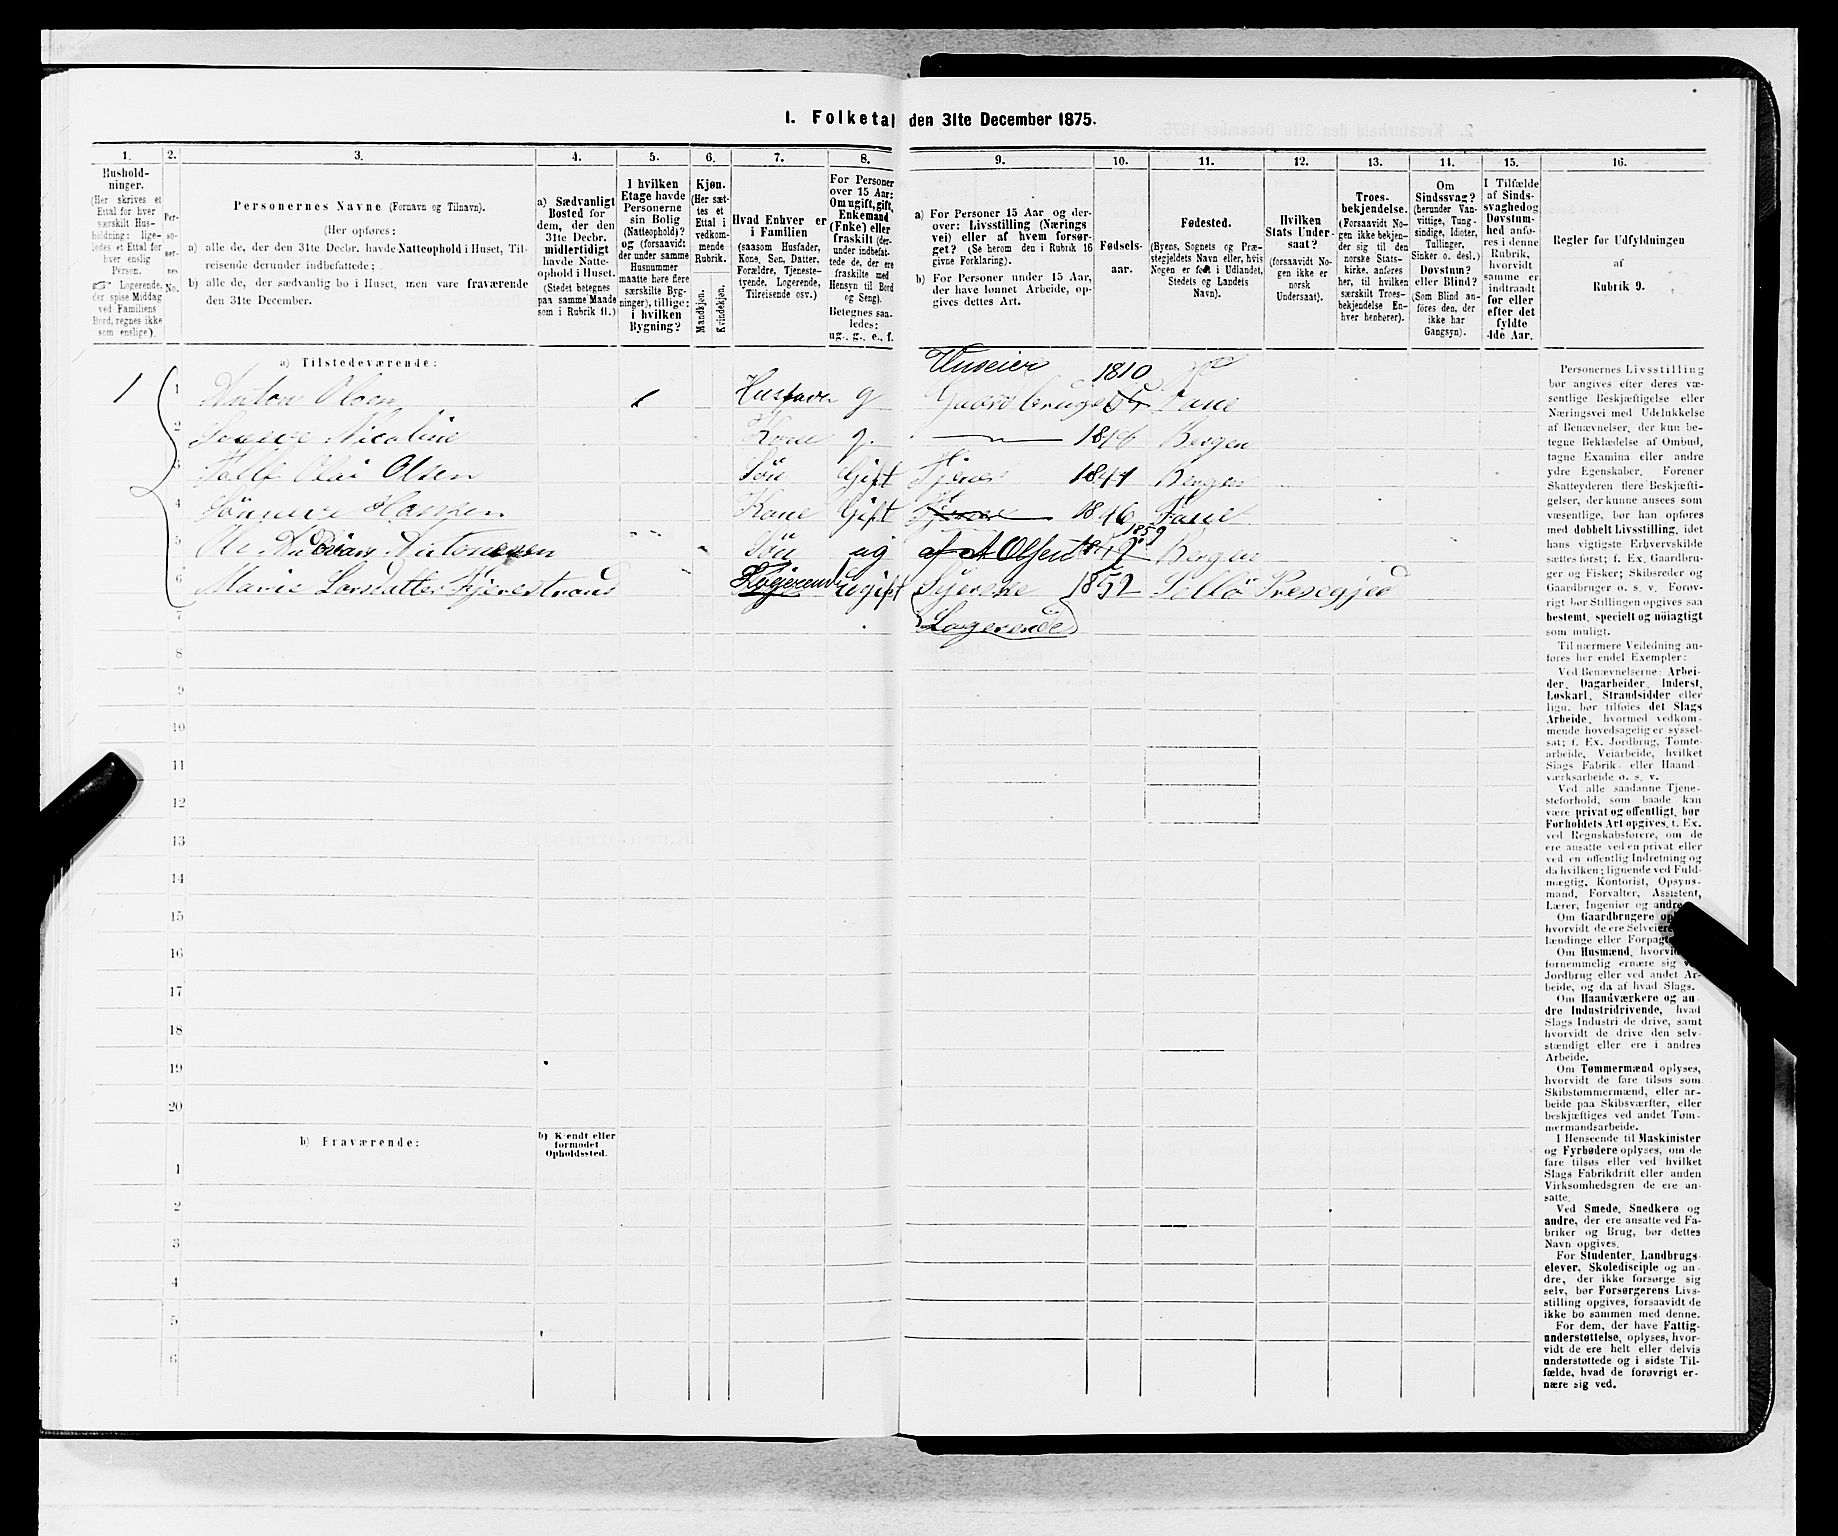 1. Folketal den 31te December 1875.
1.
Hushold-
ninger.
(Her skrives et
Ettal for hver
særskilt Hus-
holdning; lige-
ledes et Ettal for
hver enslig
Person.
☞ Logerende,
der spise Middag
ved Familiens
Bord, regnes ikke
som enslige).
2.
Per-
so-
ner-
nes
No.
3.
Personernes Navne (Fornavn og Tilnavn).
(Her opføres:
a) alle de, der den 31te Decbr. havde Natteophold i Huset, Til-
reisende derunder indbefattede;
b) alle de, der sædvanlig bo i Huset, men vare fraværende
den 31te December.
4.
a) Sædvanligt
Bosted for
dem, der den
31te Decbr.
midlertidigt
havde Natte-
ophold i Huset.
(Stedet betegnes
paa samme Maade
som i Rubrik 11.)
5.
I hvilken
Etage havde
Personerne
sin Bolig
(Natteophold)?
og (forsaavidt
der under samme
Husnummer
maatte høre flere
særskilte Byg-
ninger), tillige:
i hvilken
Bygning?
6.
Kjøn.
(Her sæt-
tes et
Ettal i
vedkom-
mende
Rubrik.
Mandkjøn.
Kvindekjøn.
7.
Hvad Enhver er
i Familien
(saasom Husfader,
Kone, Søn, Datter,
Forældre, Tjeneste-
tyende, Logerende,
Tilreisende osv.)
8.
For Personer
over 15 Aar:
Om ugift, gift,
Enkemand
(Enke) eller
fraskilt (der-
under indbefat-
tede de, der ere
fraskilte med
Hensyn til Bord
og Seng).
Betegnes saa-
ledes:
ug., g., e., f.
9.
a) For Personer 15 Aar og der-
over: Livsstilling (Nærings
vei) eller af hvem forsør-
get? (Se herom den i Rubrik 16
givne Forklaring).
b) For Personer under 15 Aar,
der have lønnet Arbeide, op-
gives dettes Art.
10.
Fødsels-
aar.
11.
Fødested.
(Byens, Sognets og Præ-
stegjeldets Navn eller, hvis
Nogen er født i Udlandet,
Stedets og Landets
Navn).
12.
Hvilken
Stats Under-
saat?
(forsaavidt No-
gen ikke er
norsk
Undersaat).
13.
Troes-
bekjendelse.
(Forsaavidt No-
gen ikke bekjen-
der sig til den
norske Stats-
kirke, anføres
her, til hvilken
særskilt Troes-
bekjendelse En-
hver henhører).
14.
Om
Sindssvag?
(herunder Van-
vittige, Tung-
sindige, Idioter,
Tullinger,
Sinker o. desl.)
Døvstum?
eller Blind?
(Som Blind an-
føres den, der
ikke har
Gangsyn).
15.
I Tilfælde
af Sinds-
svaghed og
Døvstum-
hed anfø-
res i denne
Rubrik,
hvorvidt
samme er
indtraadt
før eller
efter det
fyldte
4de Aar.
16.
Regler for Udfyldningen
af
Rubrik 9.
a) Tilstedeværende:
Huseier 1810
1 1 Anton Olsen Husfader g Gaardbruger Fane
2 Nicoline Kone g. 1816 Bergen
3 Olai Olsen Søn Gift 1841 Bergen
4 Hansen Kone Gift 1846 Fane
1859
5 Ole Søn ug af A Olsen Bergen
6 Marie Larsdatter Logerende Ugift Syerske 1852
7 Logerende
8
9
10
11
12
13
14
15
16
17
18
19
20
b) Fraværende:
b) Kjendt eller
formodet
Opholdssted.
1
2
3
4
5
6
Personernes Livsstilling
bør angives efter deres væ-
sentlige Beskjæftigelse eller
Næringsvei med Udelukkelse
af Benævnelser, der kun be-
tegne Beklædelse af Ombud,
tagne Examina eller andre
ydre Egenskaber. Forener
Skatteyderen flere Beskjæfti-
gelser, der kunne ansees som
væsentlige, bør han opføres
med dobbelt Livsstilling, idet
hans vigtigste Erhvervskilde
sættes først; f. Ex. Gaardbru-
ger og Fisker; Skibsreder og
Gaardbruger o. s. v. Forøv-
rigt bør Stillingen opgives saa
bestemt, specielt og nöiagtigt
som muligt.
Til nærmere Veiledning an-
føres her endel Exempler:
Ved Benævnelserne: Arbei-
der, Dagarbeider, Inderst,
Løskarl, Strandsidder eller
lign. bør tilføies det Slags
Arbeide, hvormed vedkom-
mende hovedsagelig er syssel-
sat; f. Ex. Jordbrug, Tomte-
arbeide, Veiarbeide, hvilket
Slags Fabrik- eller Haand-
værksarbeide o. s. v.
Ved alle saadanne Tjene-
steforhold, som baade kan
være privat og offentligt, bør
Forholdets Art opgives, f. Ex.
ved Regnskabsførere, om de
ere ansatte ved en privat eller
ved en offentlig Indretning og
da hvilken; lignende ved Fuld-
mægtig, Kontorist, Opsyns-
mand, Forvalter, Assistent,
Lærer, Ingeniør og andre.
Om Gaardbrugere
hvorvidt de ere Selveiere,
lændinge eller
Om Husmænd,
fornemmelig ernære sig
Jordbrug eller ved andet Ar-
beide, og da af hvad Slags.
Om Haandværkere og an-
dre Industridrivende, hvad
Slags Industri de drive, samt
hvorvidt de drive den selv-
stændigt eller ere i andres
Arbeide.
Om Tømmermænd oplyses,
hvorvidt de fare tilsøs som
Skibstømmermænd, eller ar-
beide paa Skibsværfter, eller
beskjæftiges ved andet Tøm-
mermandsarbeide.
I Henseende til Maskinister
og Fyrbødere oplyses, om de
fare tilsøs eller ved hvilket
Slags Fabrikdrift eller anden
Virksomhedsgren de ere an-
satte.
Ved Smede, Snedkere og
andre, der ere ansatte ved Fa-
briker og Brug, bør dettes
Navn opgives.
For Studenter, Landbrugs-
elever, Skoledisciple og an-
dre, der ikke forsørge sig
selv, bør Forsørgerens Livs-
stilling opgives, forsaavidt de
ikke bo sammen med denne.
For dem, der have Fattig-
understøttelse, oplyses, hvor-
vidt de ere helt eller delvis
understøttede og i sidste Til-
fælde, hvad de forøvrigt er-
nære sig ved.